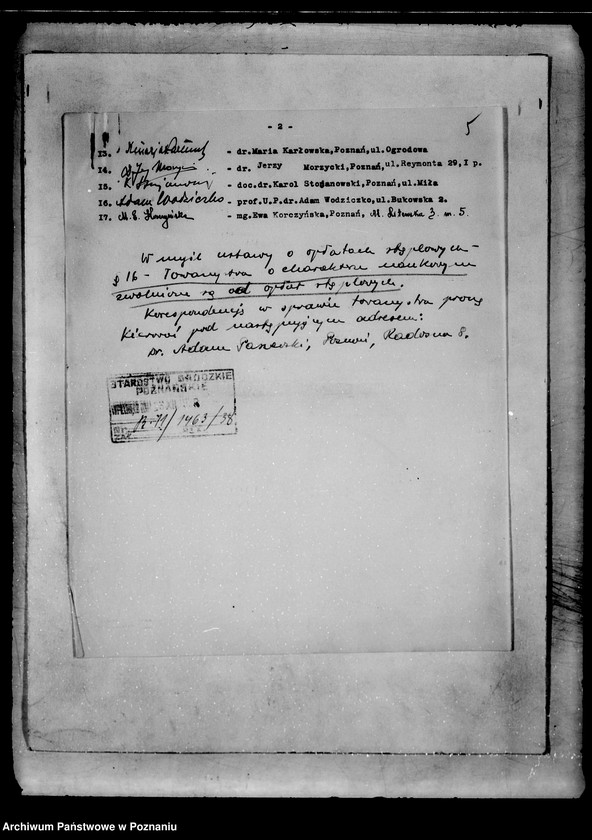 - 2 -
5
13. - dr.Maria Karłowska,Poznań,ul.Ogrodowa
14. - dr. Jerzy Morzycki,Poznań,ul.Reymonta 29,I p.
15. - doc.dr.Karol Stojanowski,Poznań,ul.Miła
16. Adam Wodziczko - prof.U.P.dr.Adam Wodziczko,ul.Bukowska 2.
17. - mg.Ewa Korczyńska,Poznań, 3. m. 5.
W myśl ustawy o opłatach stęplowych -
§ 16 - Towarzystwa o charakterze naukowym
zwolnione są od opłat stęplowych.
Korespondencję w sprawie towarzystwa proszę
kierować pod następującym adresem:
Dr. Adam Paszewski, Poznań, Radosna 8.
STAROSTWO GRODZKIE
POZNAŃSKIE
R-71/1463/38
Archiwum Państwowe w Poznaniu